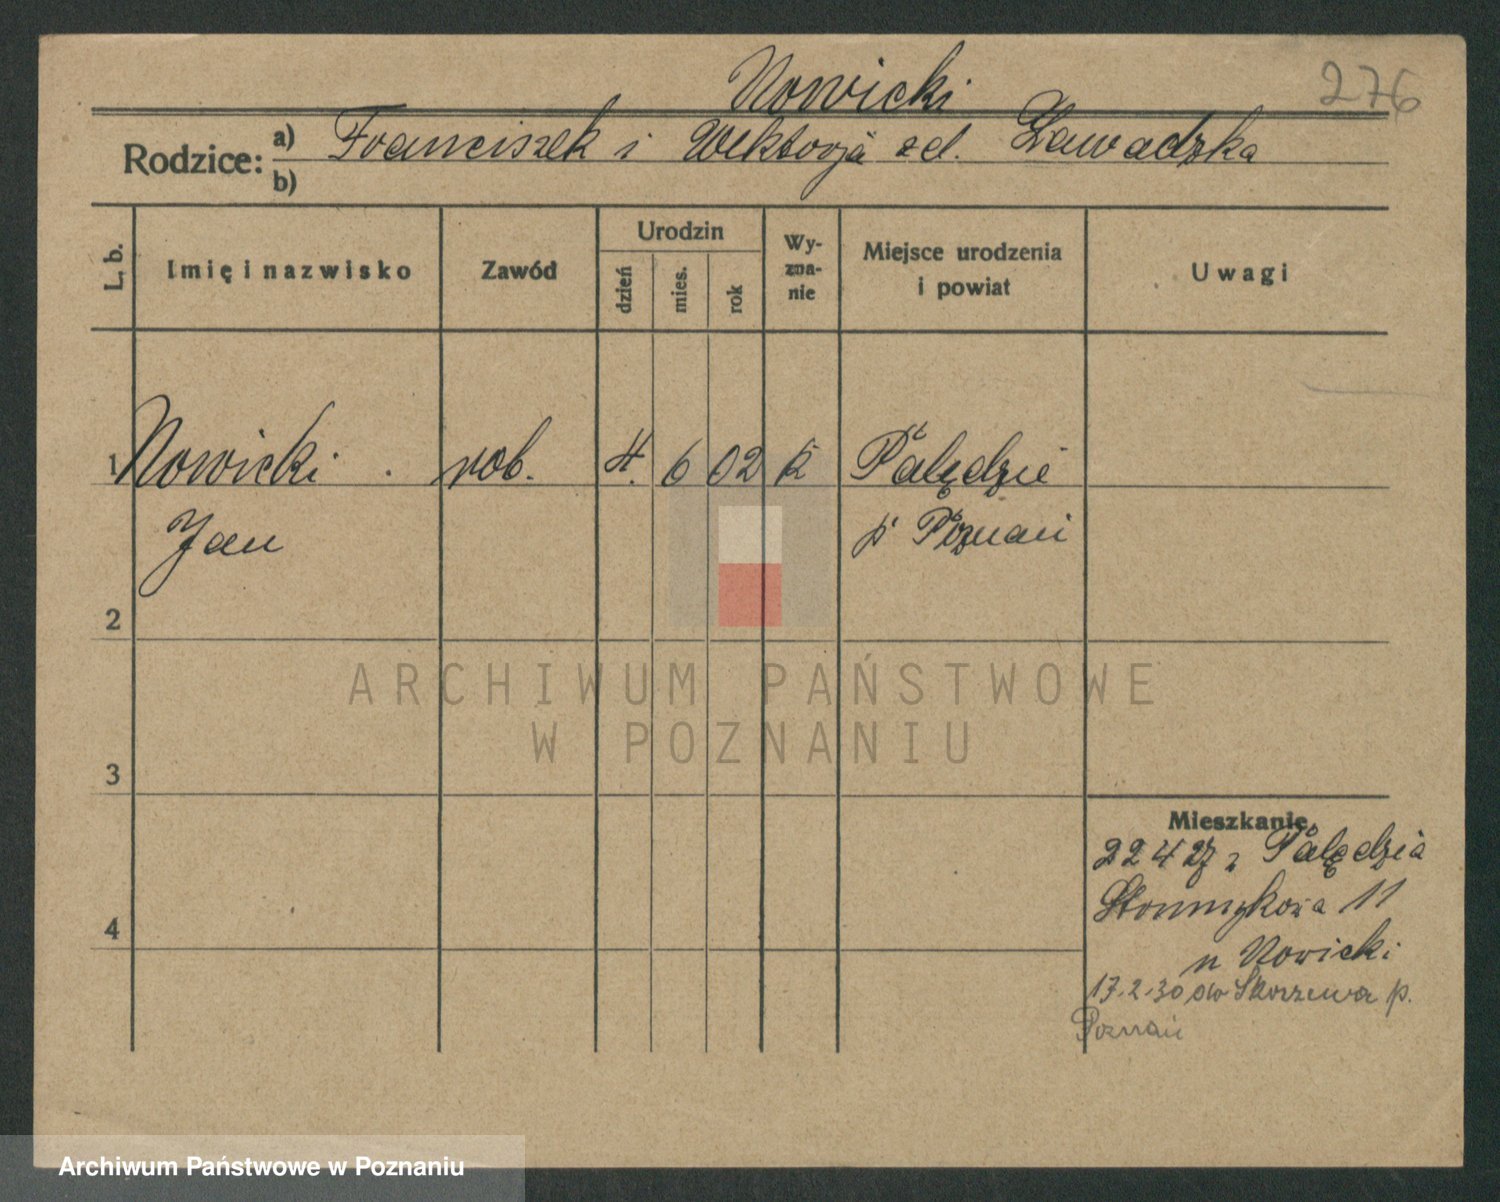 276
Nowicki
Rodzice: a) Franciszek i Wiktorja zd. Zawadzka
b)
L. b. Imię i nazwisko Zawód Urodzin dzień mies. rok Wy-zna-nie Miejsce urodzenia i powiat Uwagi
1 Nowicki rob. 4. 6 02 k Palędzie
Jan p Poznań
2
ARCHIWUM PAŃSTWOWE
W POZNANIU
3
Mieszkanie
22 4 27 z Palędzia
11
4
u Nowicki
17.2.30 do Skorzewa p.
Poznań
Archiwum Państwowe w Poznaniu